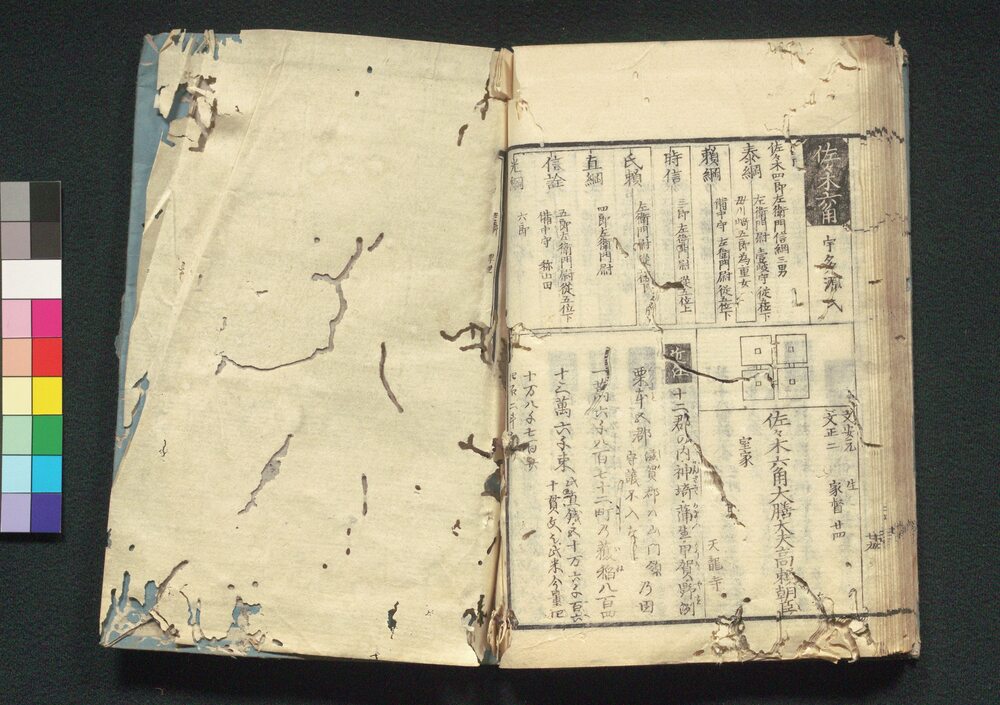 佐々木六角
宇多源氏
佐々木四郎左衛門信綱三男
泰綱
左衛門尉 壹岐守 従五位下
母川崎五郎為重女
頼綱
備中守 左衛門尉従五位下
時信
三郎 左衛門尉 従五位上
氏頼
左衛門尉
直綱
四郎左衛門尉
信詮
五郎左衛門尉従五位下
備中守 称山田
光綱
六郎
文安元 生
文正二 家督 廿四
佐々木六角大膳大夫高頼朝臣
室家
天龍寺
近江
十二郡の内神埼蒲生甲賀野洲
栗本五郡 滋賀郡ハ山門領乃因
守護不入
一萬六千八百七十二町乃獲稲八百四
十三萬六千束 此直銭五十万六千百六
十貫文
十万八千七百